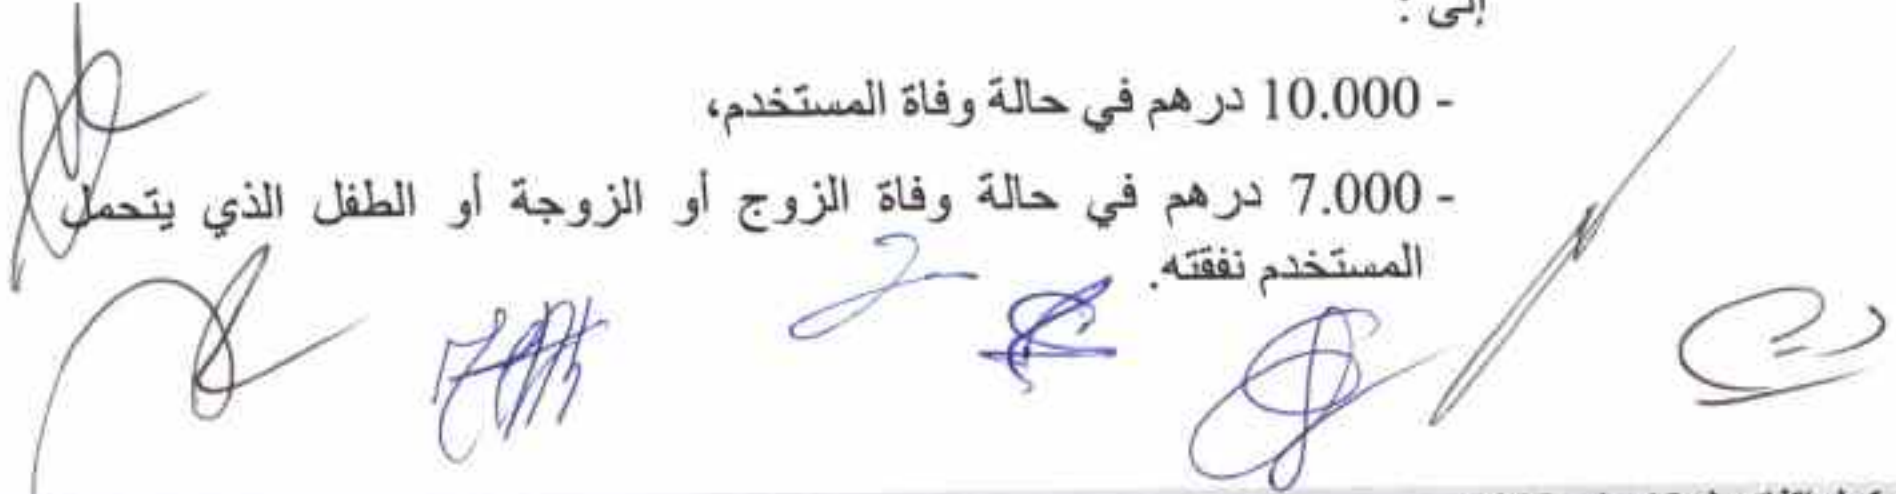 إلى :
- 10.000 درهم في حالة وفاة المستخدم،
- 7.000 درهم في حالة وفاة الزوج أو الزوجة أو الطفل الذي يتحمل
المستخدم نفقته.